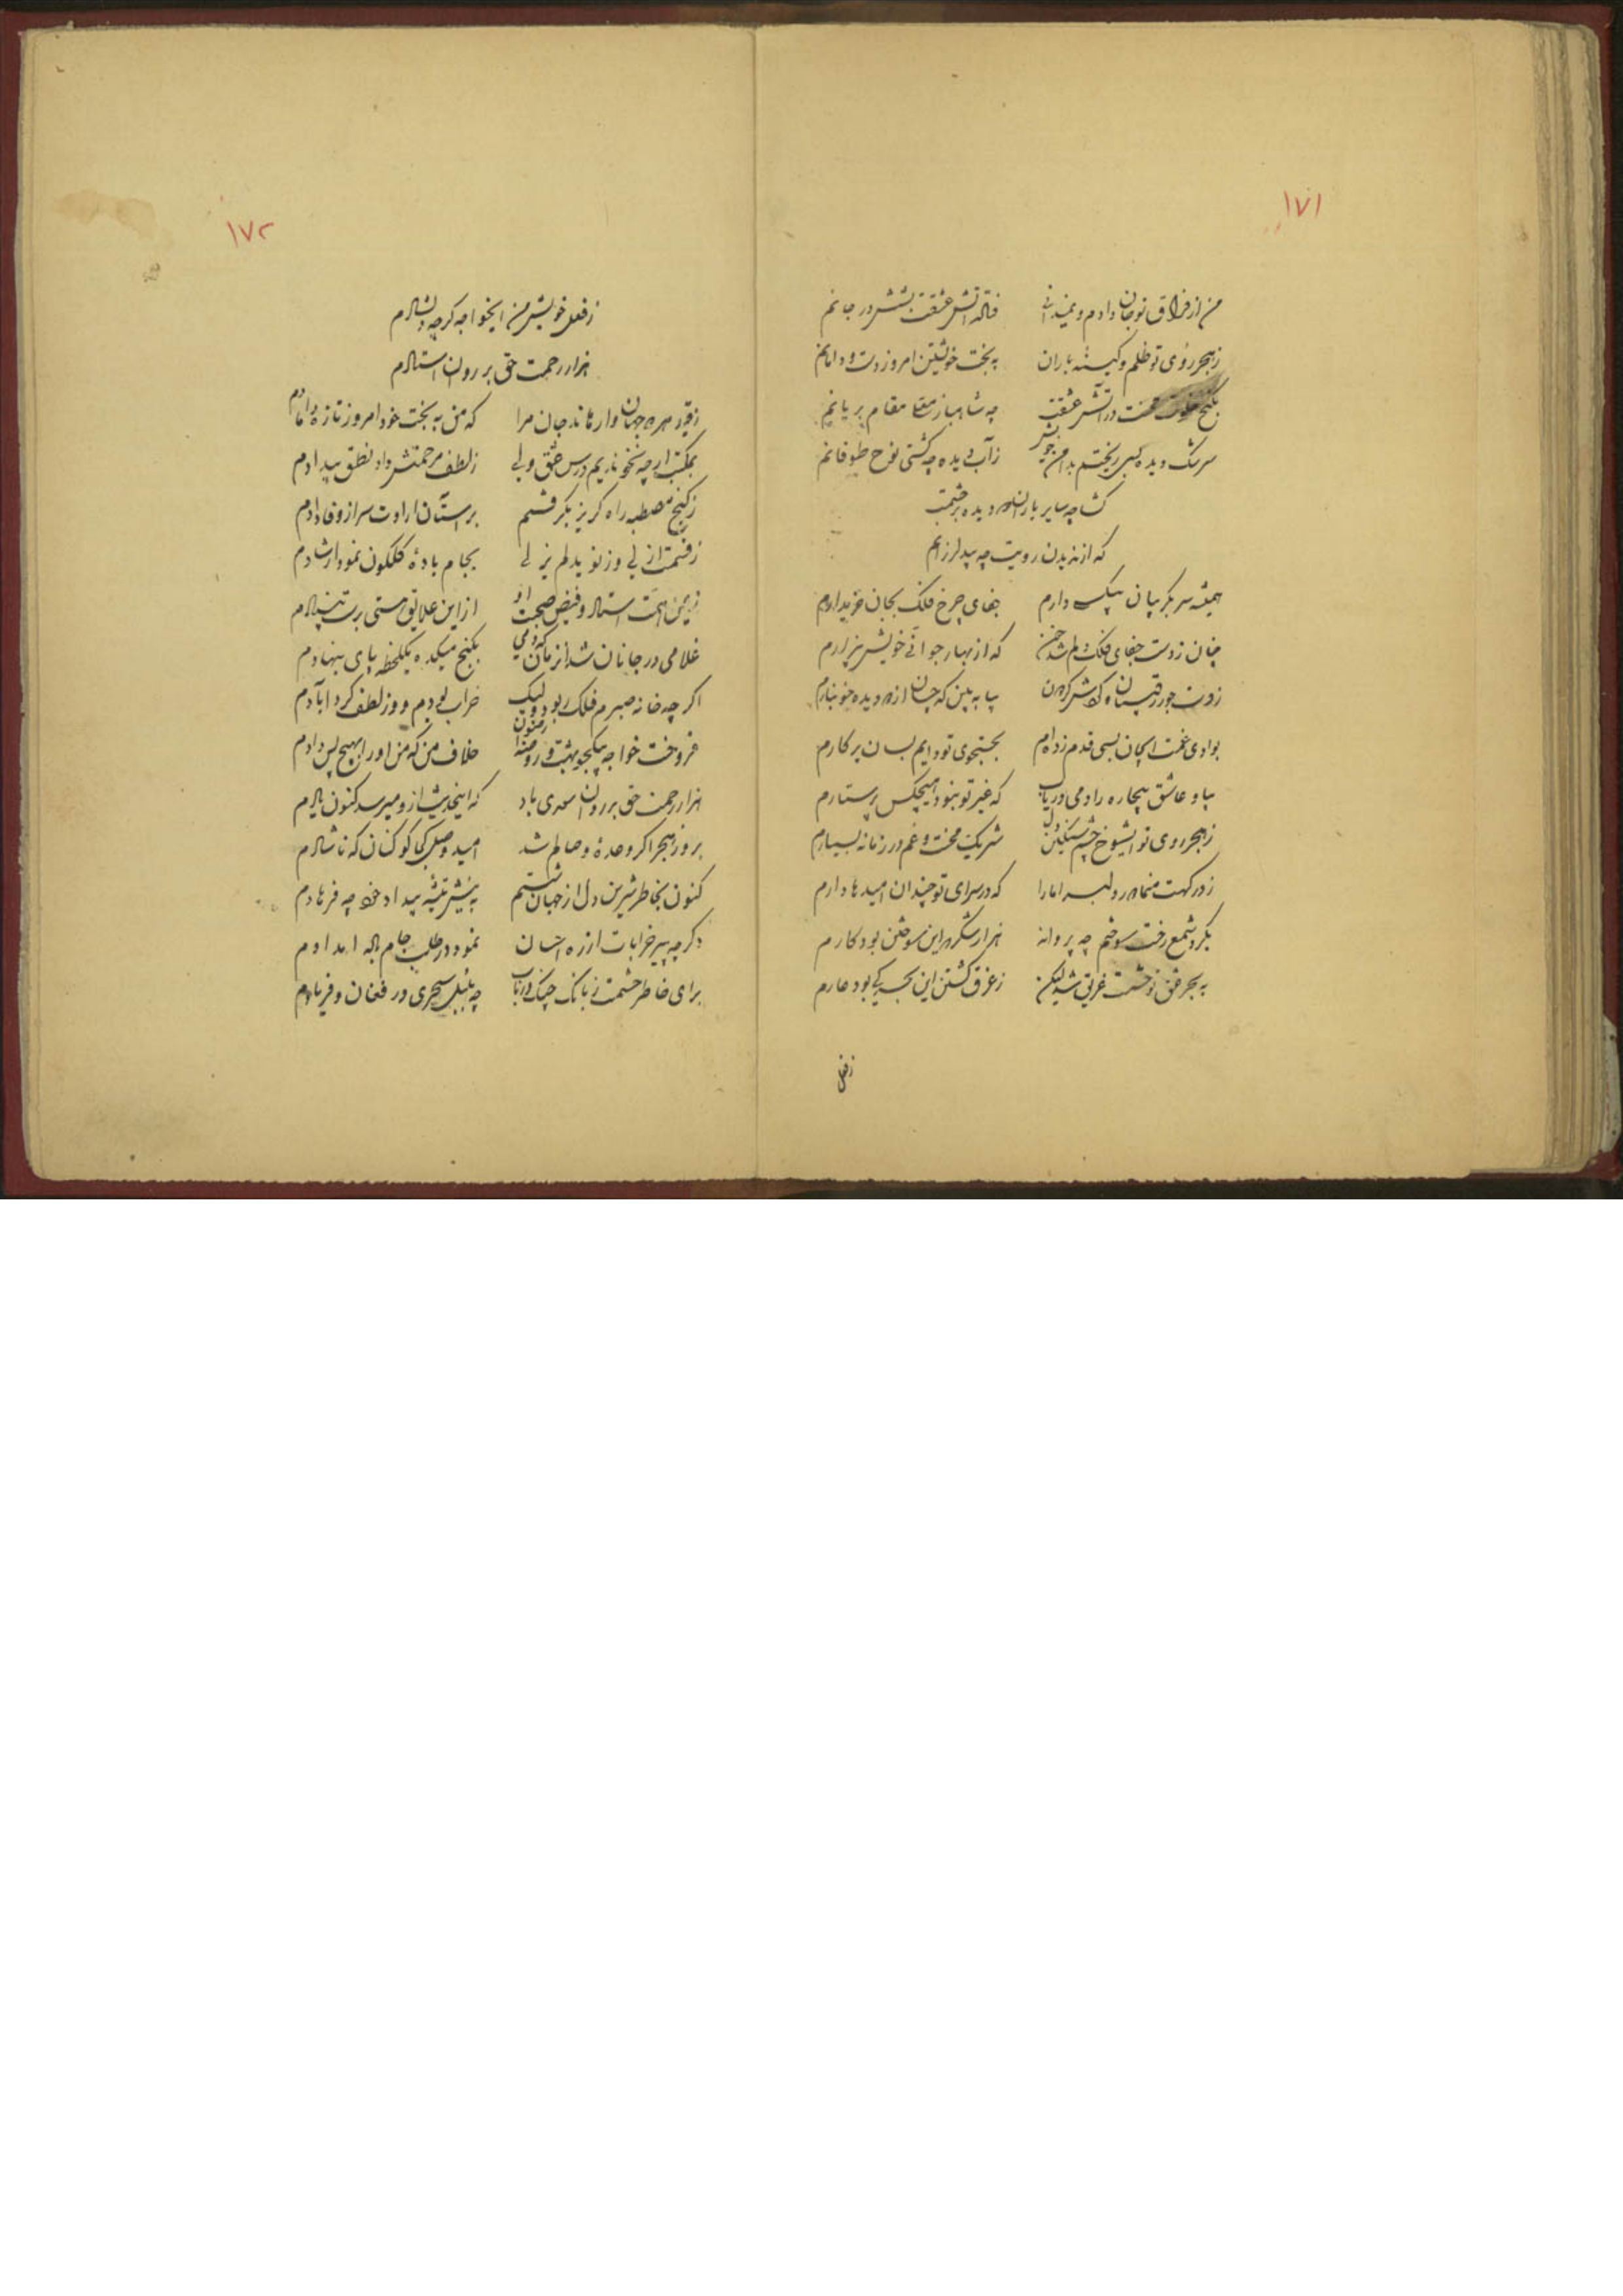 ١٧١
من از فراق تو جان دادم و نمیدانی فتاده آتش عشقت بشش در جانم
ز هجر روی تو ظلم و باران به بخت خویشتن امروز دست و دامانم
بکنج در آتش عشقت چه شاهباز مقام بریانم
سرشک دیده بسی ریختم بدامن ز آب دیده چه کشتی نوح طوفانم
کشا چه سایر یاران دیده رحمت
که از ندیدن رویت چه بید لرزانم
همیشه سر بکریبان بیکسی دارم جفای چرخ فلک بجان خریدارم
چنان ز دست جفای فلک دلم شد خون که از بهار جوانی خویش بیزارم
ز دست جور رقیبان بیا به بین که چسان از دو دیده خونبارم
بوادی غمت ایجان بسی قدم زده‌ام بجستجوی تو دایم بسان پرکارم
بیا و عاشق بیچاره را دمی دریاب که غیر تو نبود هیچکس پرستارم
ز هجر روی تو ایشوخ چشم سنکین دل شریک محنت و غم در زمانه بسیارم
ز درکهت منما رد دلبر اما را که در سرای تو چندان امیدها دارم
بکرد شمع رخت سوختم چه پروانه هزار شکر که این سوختن بود کارم
به بحر عشق تو حشمت غریق شد لیکن ز غرق کشتن این بحر کی بود عارم
ز فعل
١٧٢
ز فعل خویش من ایخواجه کرچه دلشادم
هزار رحمت حق بر روان استادم
ز قید هر دو جهان وارهاند جان مرا که من به بخت خود امروز تازه دامادم
بمکتب ار چه نخواندیم درس عشق ولی ز لطف مرحمتش داد نطق بیدادم
ز کنج مصطبه راه کریز بکرفتم بر آستان ارادت سر از وفا دادم
ز قسمت ازلی وز نوید لم یزلی بجام بادهٔ کلکون نمود ارشادم
ز یمن همت استاد و فیض صحبت او از این علایق هستی برست بنیادم
غلامی در جانان شد از زمان که دمی بکنج میکده یکلحظه پای بنهادم
اکر چه خانه صبرم فلک ربود ولیک خراب بودم و وز لطف کرد آبادم
فروخت خواجه بیکجو بهشت و روضه رضوان خلاف من که من او را بهیچ پس دادم
هزار رحمت حق بر روان سعدی باد که اینحدیث از او میرسد کنون یادم
بروز هجر اکر وعدهٔ وصالم شد امید وصل کجا کو کنان که ناشادم
کنون بخاطر شیرین دل از جهان شستم به نیش تیشه بیداد خود چه فرهادم
دکر چه پیر خرابات از ره احسان نمود در طلب جام باده امدادم
برای خاطر حشمت ز بانک چنک و رباب چه بلبل سحری در فغان و فریادم